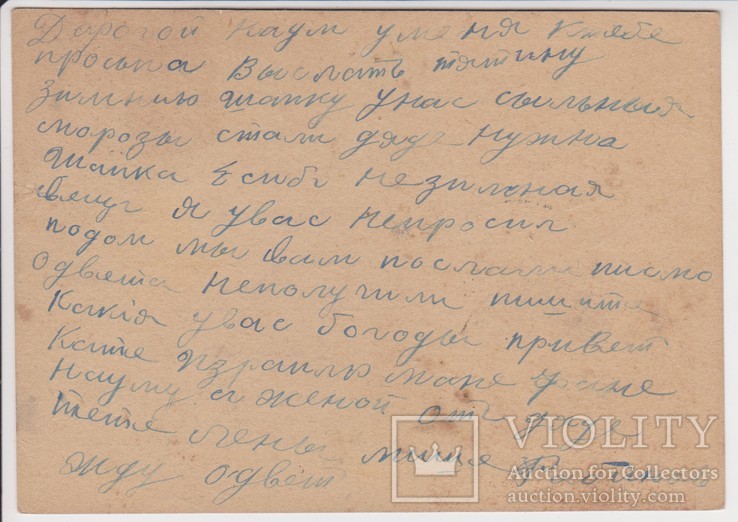 Дарогой наум у меня ктебе
просьпа выслать тятину
зимнию шапку унас сыльныя
морозы стали дяде нужна
шапка Есибе незимная
вещи я увас непросил
подом мы вам послали писмо
одвета неполучили пишите
Какия увас богоды привет
Кате Израилю мане фане
Науму а женой от дяде
тете лены мише
жду одвет
VIOLITY
Auction for Collectors
auction.violity.com